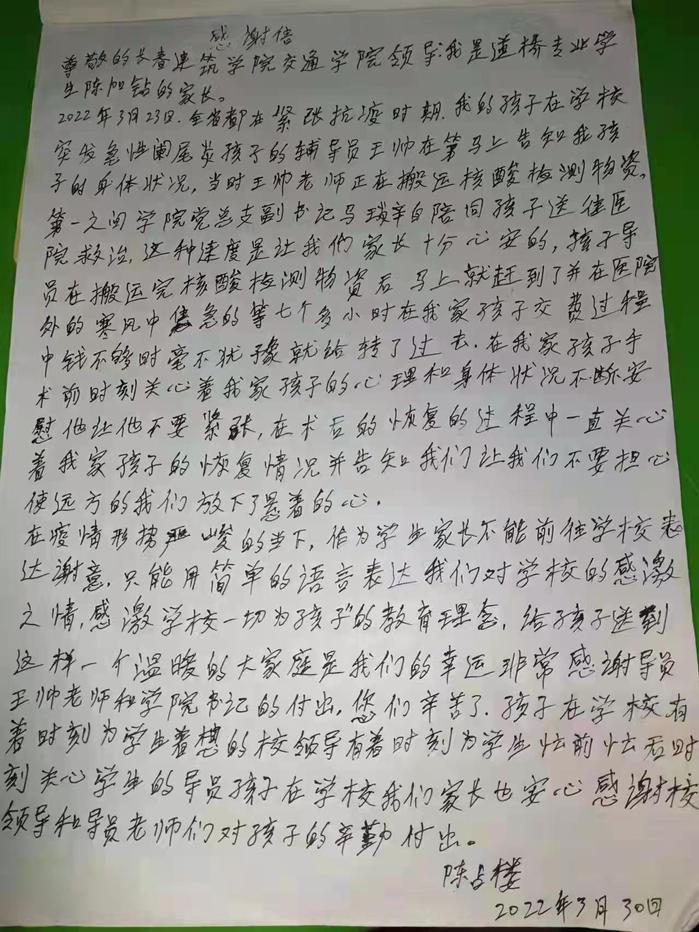 感谢信
尊敬的长春建筑学院交通学院领导:我是道桥专业学
生陈加钻的家长。
2022年3月23日.全省都在紧张抗疫时期.我的孩子在学校
突发急性阑尾炎孩子的辅导员王帅在第马上告知我孩
子的身体状况,当时王帅老师正在搬运核酸检测物资。
第一之间学院党总支副书记马瑛辛自陪同孩子送往医
院救治,这种速度是让我们家长十分心安的,孩子导
员在搬运完核酸检测物资后马上就赶到了并在医院
外的寒风中焦急的等七个多小时在我家孩子交费过程
中钱不够时毫不犹豫就给转了过去.在我家孩子手
术前时刻关心着我家孩子的心理和身体状况不断安
慰他让他不要紧张,在术后的恢复的过程中一直关心
着我家孩子的恢复情况并告知我们让我们不要担心
使远方的我们放下了悬着的心.
在疫情形势严峻的当下,作为学生家长不能前往学校表
达谢意.只能用简单的语言表达我们对学校的感激
之情,感激学校一切为孩子的教育理念,给孩子送到
这样一个温暖的大家庭是我们的幸运非常感谢导员
王帅老师和学院书记的付出,您们辛苦了.孩子在学校有
着时刻为学生着想的校领导有着时刻为学生忙前忙后时
刻关心学生的导员孩子在学校我们家长也安心感谢校
领导和导员老师们对孩子的辛勤付出。
陈占楼
2022年3月30日